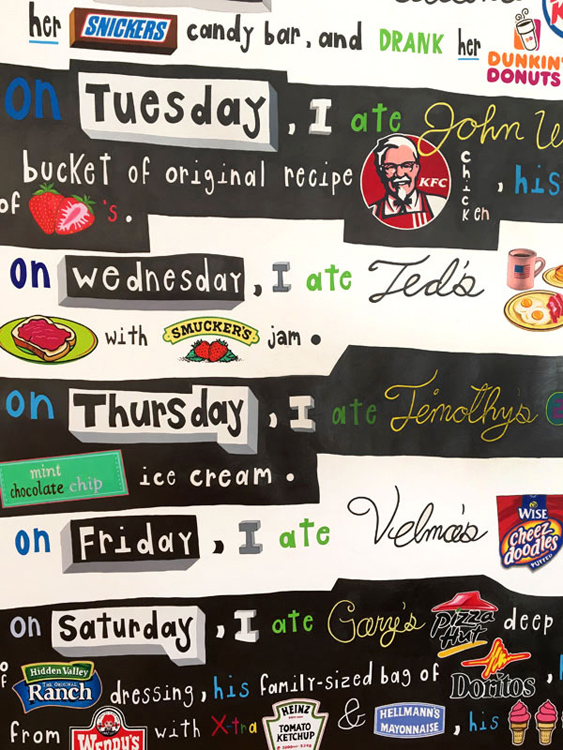 her SNICKERS candy bar, and DRANK her DUNKIN' DONUTS
on Tuesday, I ate John
bucket of original recipe KFC chicken, his
of 's.
on wednesday, I ate Ted's
with SMUCKER'S jam.
on Thursday, I ate Timothy's
mint chocolate chip ice cream.
on Friday, I ate Velma's WISE cheez doodles PUFFED
on Saturday, I ate Gary's Pizza Hut deep
of Hidden Valley THE ORIGINAL Ranch dressing, his family-sized bag of Doritos,
from Wendy's with X-tra HEINZ TOMATO KETCHUP & HELLMANN'S MAYONNAISE, his